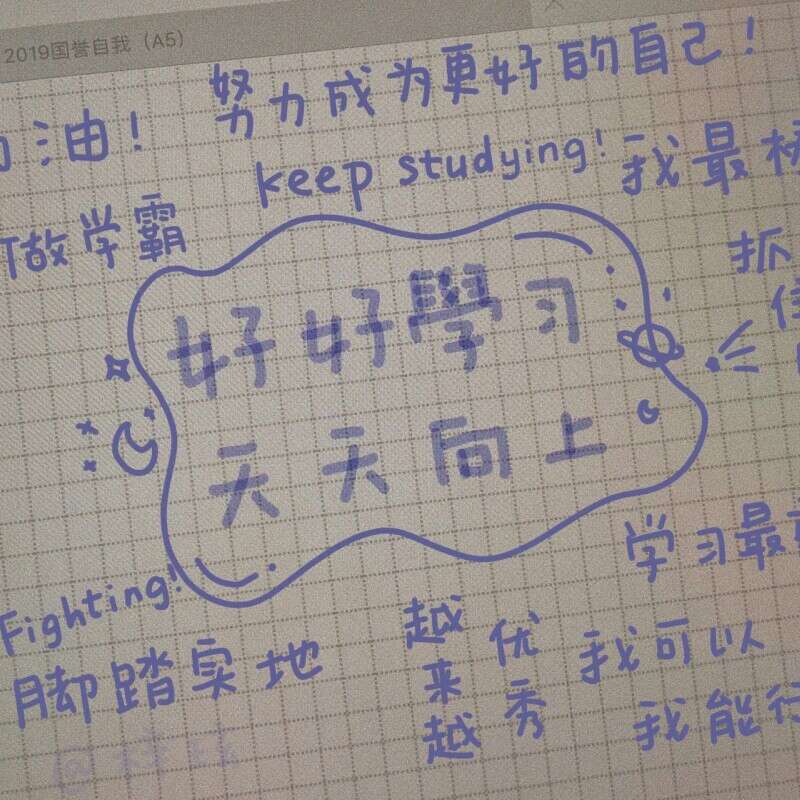 2019国誉自我（A5）
努力成为更好的自己！
油！
keep studying!
我最
做学霸
抓
住
好好學习
天天向上
学习最
Fighting!
脚踏实地
越来越
优秀
我可以
我能行